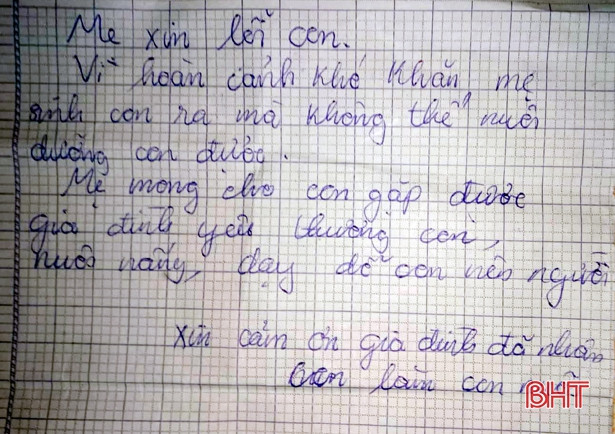 Mẹ xin lỗi con.
Vì hoàn cảnh khó khăn mẹ
sinh con ra mà không thể nuôi
dưỡng con được.
Mẹ mong cho con gặp được
gia đình yêu thương con,
nuôi nấng, dạy dỗ con nên người
xin cảm ơn gia đình đã nhận
con làm con
BHT